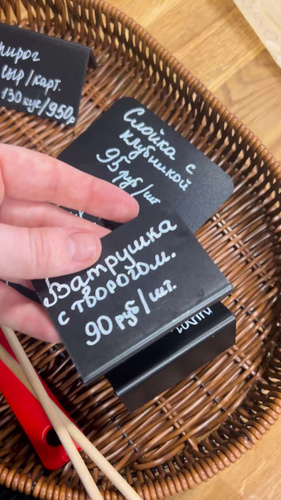 пирог
сыр/карт.
130 кус/950р
Слойка с
клубникой
95 руб/шт
Ватрушка
с творогом.
90 руб/шт.